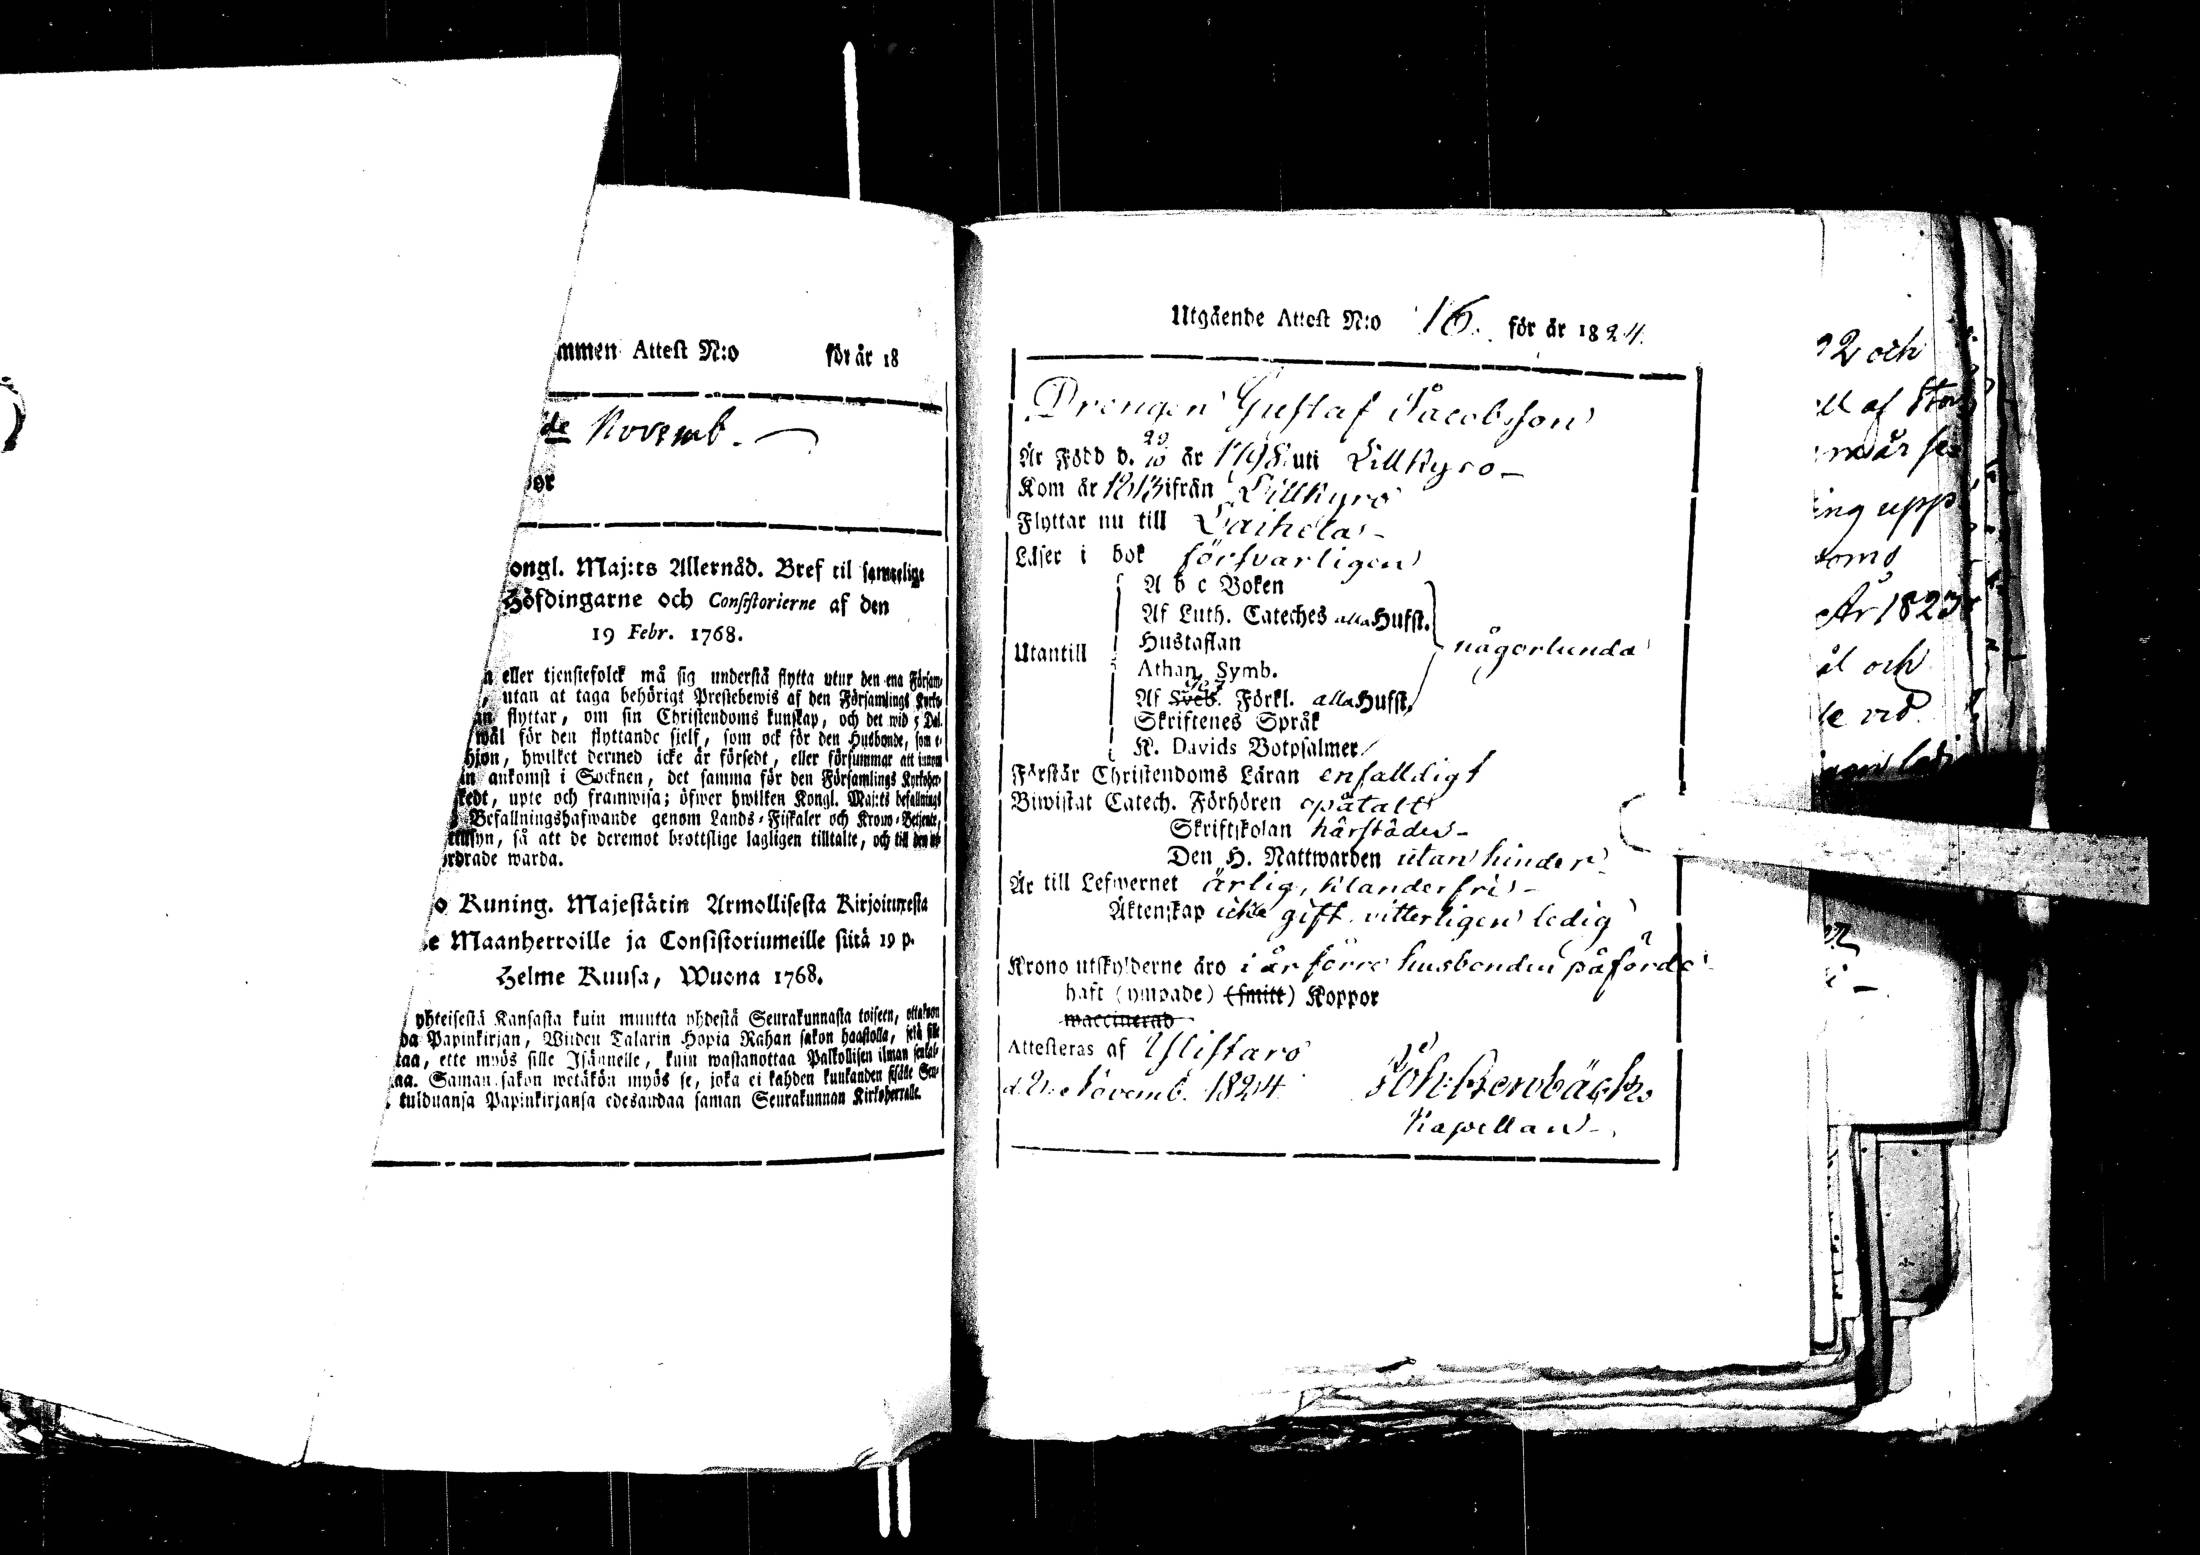 mmen Attest N:o för år 18
de Novemb.
por
ongl. Maj:ts Allernåd. Bref til samtelige
Höfdingarne och Consistorierne af den
19 Febr. 1768.
n eller tjenstefolck må sig understå flytta utur den ena Försam-
, utan at taga behörigt Prestebewis af den Församlings Kyrko-
an flyttar, om sin Christendoms kunskap, och det wid 5 Dal.
wäl för den flyttande sielf, som ock för den Husbonde, som e-
hjon, hwilket dermed icke är försedt, eller försummar att innom
in ankomst i Socknen, det samma för den Församlings Kyrkoher-
kedt, upte och framwisa; öfwer hwilken Kongl. Maj:ts befallnings
Befallningshafwande genom Lands-Fiskaler och Krono-Betjente,
ttusyn, så att de deremot brottslige lagligen tilltalte, och till den
ordrade warda.
o Kuning. Majestätin Armollisesta Kirjoituxesta
e Maanherroille ja Consistoriumeille siitä 19 p.
Helme Kuusa, Wuona 1768.
yhteisestä Kansasta kuin muutta yhdestä Seurakunnasta toiseen, ottakoon
da Papinkirjan, Wiiden Talarin Hopia Rahan sakon haastolla, sekä sille
taa, ette myös sille Isännelle, kuin wastanottaa Palkollisen ilman
aa. Saman sakon wetäkön myös se, joka ei kahden kuukanden sisälle Seu-
tulduansa Papinkirjansa edesandaa saman Seurakunnan Kirkoherralle.
Utgående Attest N:o 16. för år 1824.
Drengen Gustaf Jacobsson
Är Född d. 20/10 år 1798 uti Lillkyro
Kom år 1813 ifrån Lillkyro
Flyttar nu till Laihela
Läser i bok försvarligen
A b c Boken
Af Luth. Cateches alla Hufst.
Utantill Hustaflan någorlunda
Athan. Symb.
Af Sveb. Förkl. alla Hufst.
Skriftenes Språk
K. Davids Botpsalmer
Förstår Christendoms Läran enfalldigt
Biwistat Catech. Förhören opåtalt
Skriftskolan härstädes
Den H. Nattwarden utan hinder
Är till Lefwernet ärlig, klanderfri
Äktenskap icke gift vitterligen ledig
Krono utskylderne äro i år förre husbonden påförde
haft (ympade) (smitt) Koppor
waccinerad
Attesteras af Ylistaro
d. 2 Novemb. 1824. Joh: Stenbäck
Kapellan
2 och
ll af
ing upp
År 1823
ål och